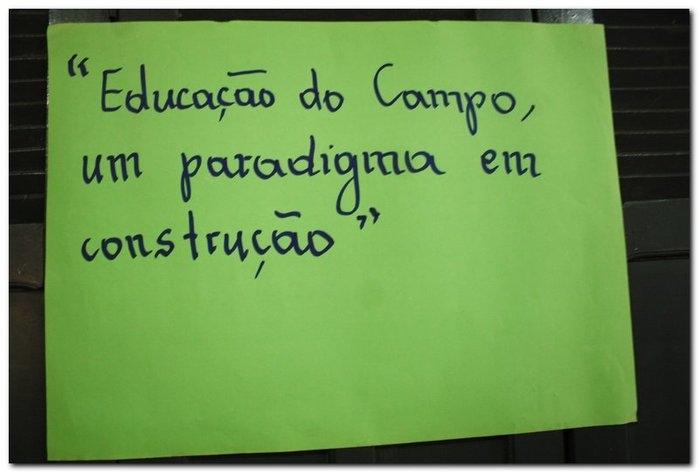 “Educação do Campo,
um paradigma em
construção”